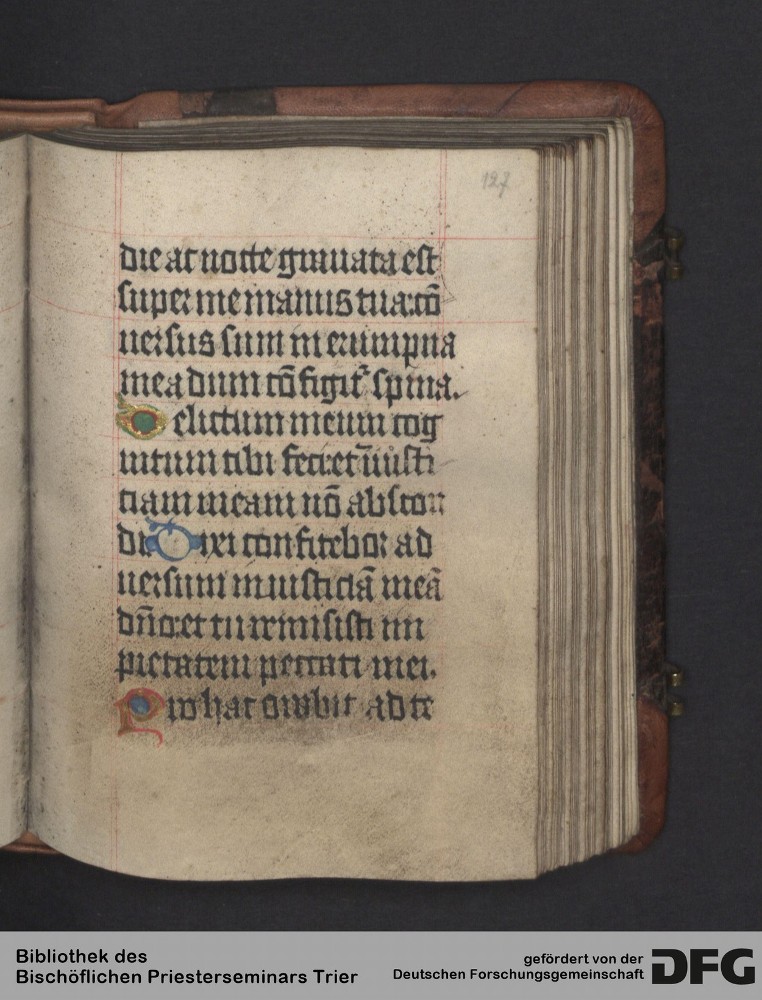 127
die ac nocte grauata est
super me manus tua: cō
uersus sum in erumpna
mea dum cōfigit᷑ spina.
Delictum meum cog
nitum tibi feci: et īiusti
ciam meam nō abscon
di Dixi confitebor ad
uersum me iniusticiā meā
dn̄o: et tu remisisti im
pietatem peccati mei.
Pro hac orabit ad te
Bibliothek des
Bischöflichen Priesterseminars Trier
gefördert von der
Deutschen Forschungsgemeinschaft
DFG